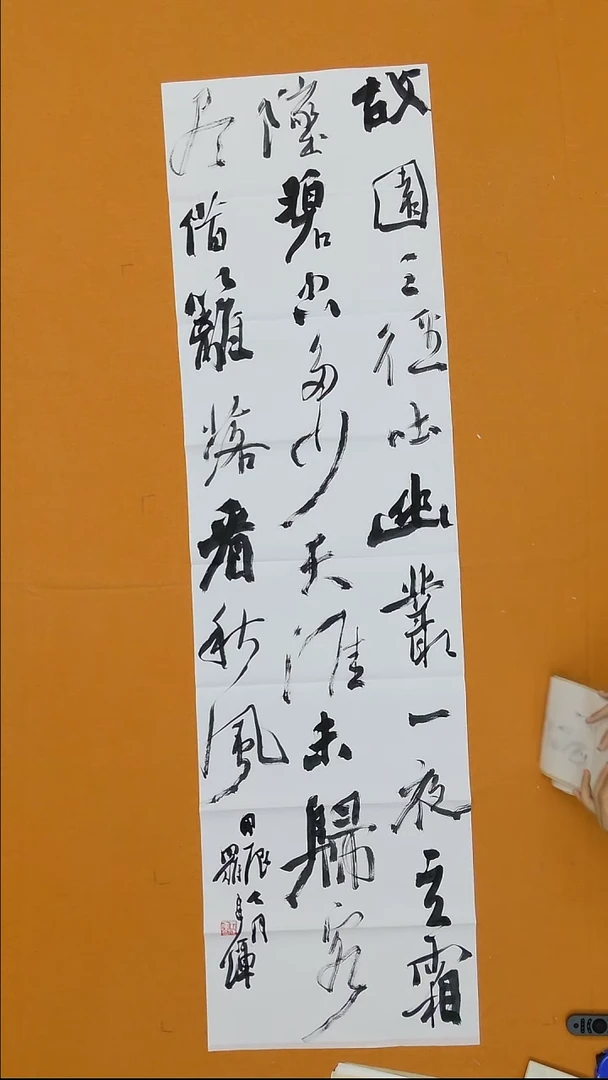 故園三徑吐幽叢一夜玄霜
墜碧空多少天涯未歸客
尽借籬落看秋風
辰七月
羅輝